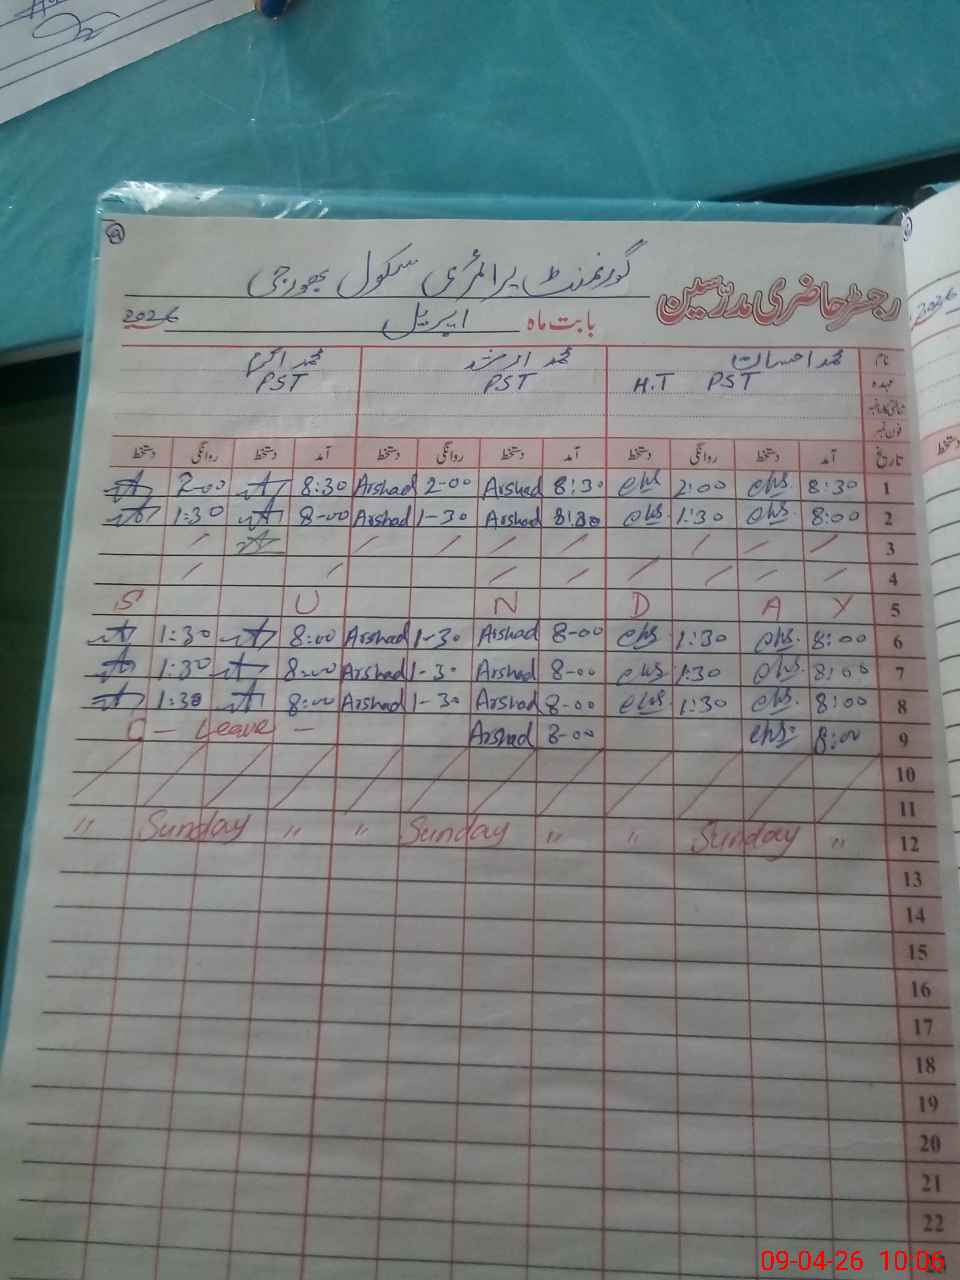 گورنمنٹ پرائمری سکول بھورجی
رجسٹر حاضری مدرسین
بابت ماہ اپریل 2026
نام محمد احسان محمد ارشد محمد اکرم
عہدہ H.T PST PST PST
فون نمبر
تاریخ آمد دستخط روانگی دستخط آمد دستخط روانگی دستخط آمد دستخط روانگی دستخط
2-00 8:30 Arshad 2-00 Arshad 8:30 2:00 8:30 1
1:30 8-00 Arshad 1-30 Arshad 1:30 8:00 2
3
4
S U N D A Y 5
1:30 8:00 Arshad 1-30 Arshad 8-00 1:30 8:00 6
1:30 8:00 Arshad 1-30 Arshad 8-00 1:30 8:00 7
1:30 8:00 Arshad 1-30 Arshad 8-00 1:30 8:00 8
C - Leave - Arshad 8-00 8:00 9
10
11
" Sunday " " Sunday " " Sunday " 12
13
14
15
16
17
18
19
20
21
22
23
2026
دستخط
09-04-26 10:06